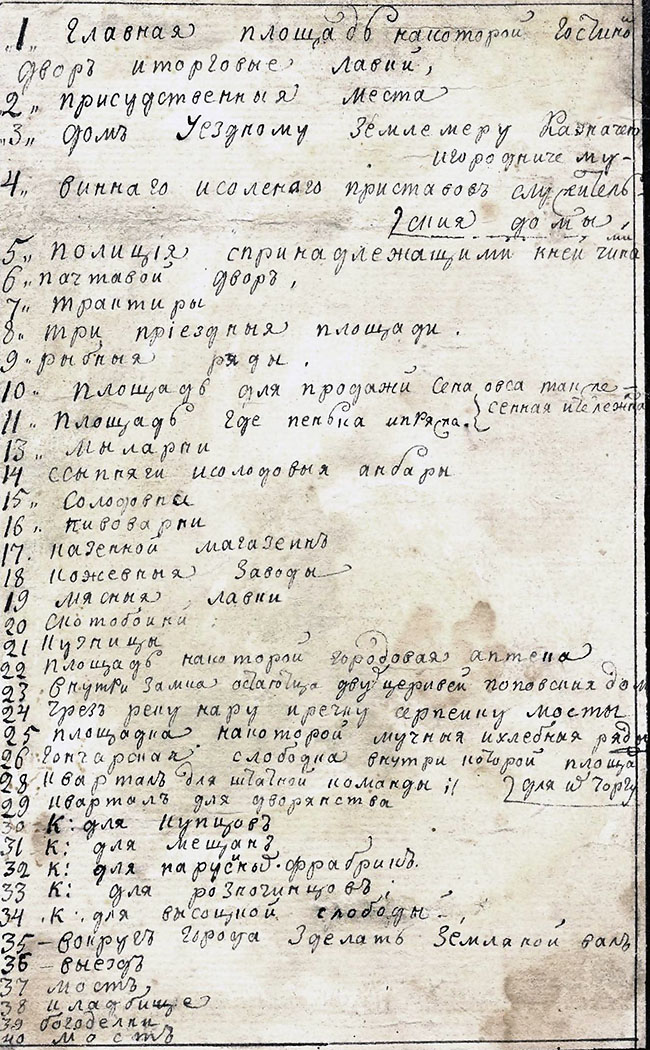 „1„ Главная площадь накоторой Гостиной
дворъ иторговые лавки,
„2„ присудственныя места
„3„ домъ Уездному Землемеру Казначею
игородниче му-
4„ виннаго исоленаго приставовъ служитель-
ския домы,
5„ полиція спринадлежащими кней чинами
6„ пачтавой дворъ,
7„ трактиры
8„ три пріездныя площади.
9„ рыбныя ряды.
10„ Площадь для продажи сена овса такъже
11„ Площадь где пенька сенная итележна
13„ мыларни
14 ссыпняги исолодовыя анбары
15„ Солодовни
16„ пивоварни
17. казенной магазеинъ
18 кожевныя Заводы
19 мясныя лавки
20 скотобойни
21 Кузницы
22 Площадь накоторой городовая аптека
23 внутри Замка двухъ церквей поповския дом
24 Чрезъ реку нару иречку серпейку мосты
25 площадка накоторой мучныя ихлебная ряды
26 Гончарская слободка внутри которой площа
28 Кварталъ для штатной команды для торгу
29 кварталъ для дворянства
30 К: для Купцовъ
31 К: для мещанъ
32 К: для парусных фрабрикъ.
33 К: для розночинцовъ,
34 К: для слободы
35 -вокругъ города Зделать Земляной валъ
36 -выездъ
37 мостъ,
38 кладбище
39 богоделни
40 мостъ